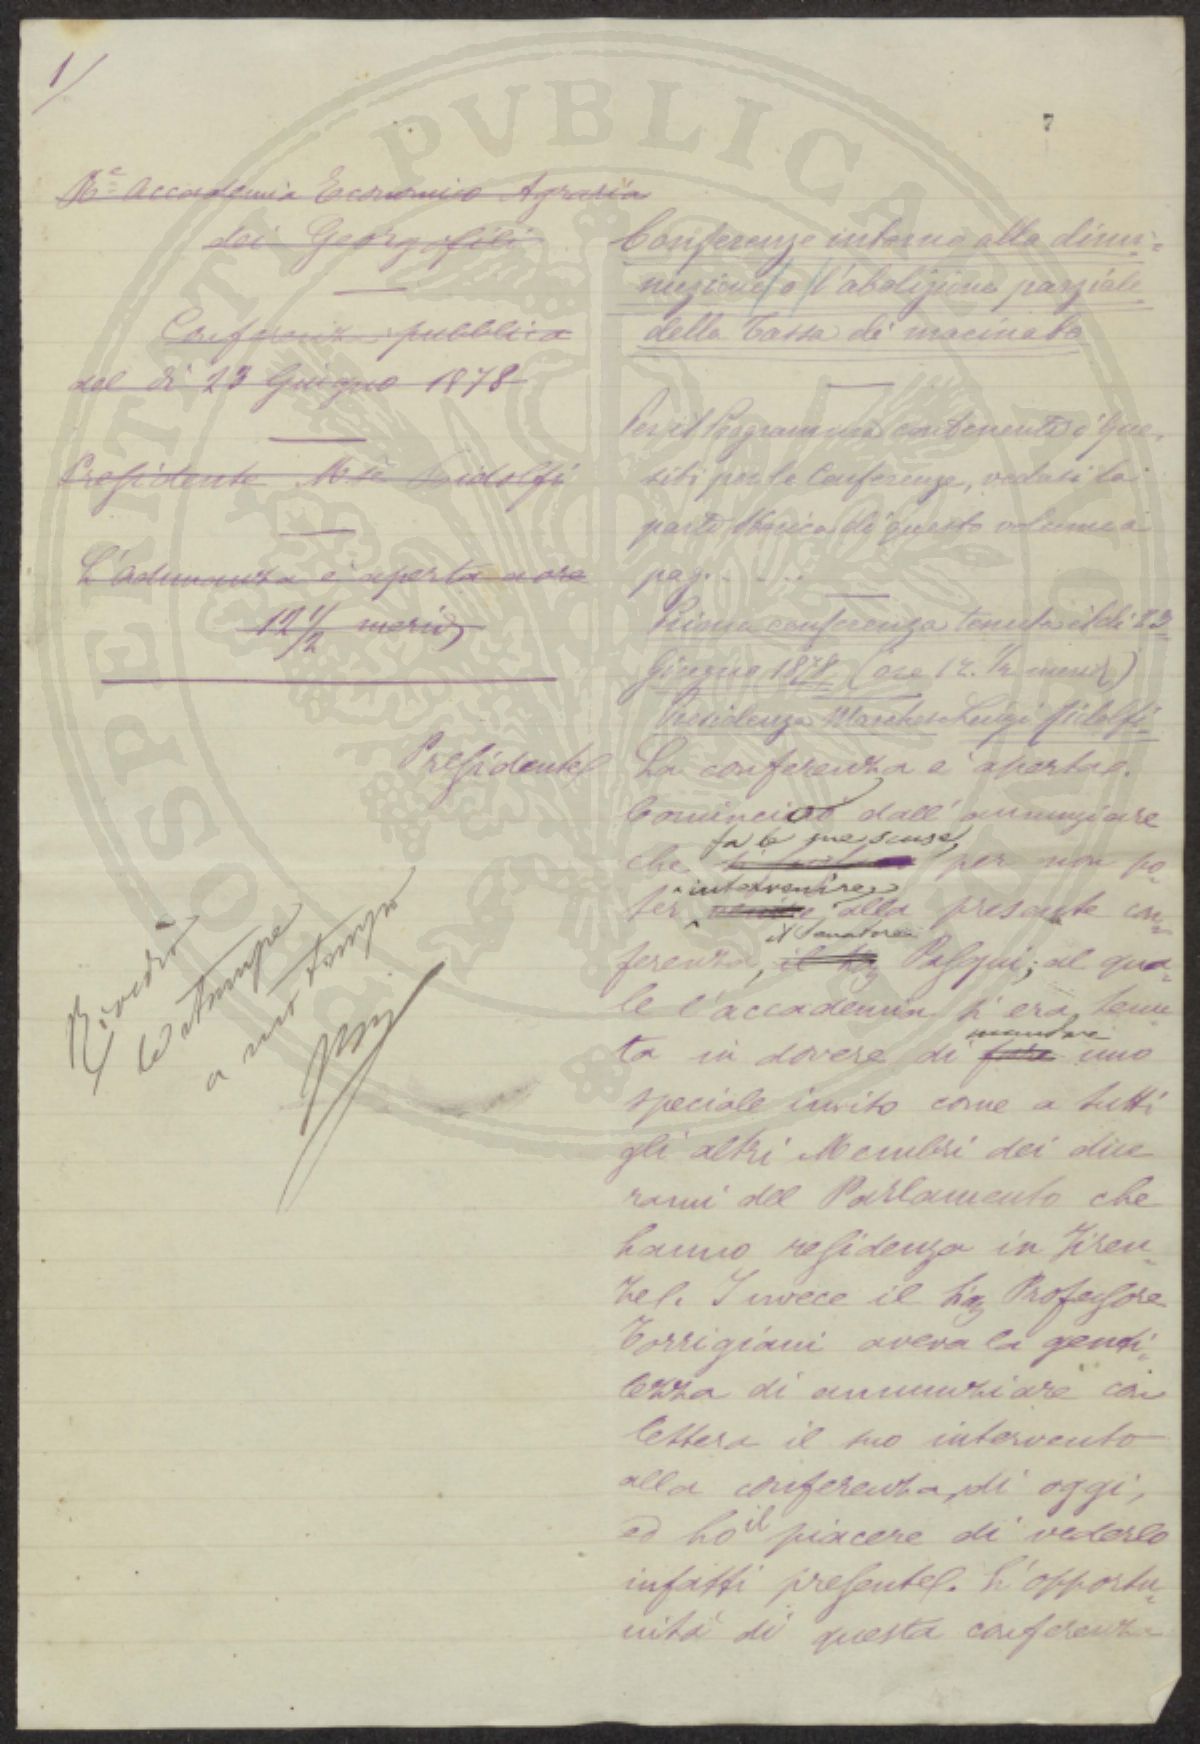 1/
7
R.e Accademia Economico Agraria
dei Georgofili
Conferenza pubblica
del dì 23 Giugno 1878
Presidente M.se Ridolfi
L'Adunanza è aperta a ore
12 1/2 merid.
Rivedrò
le stampe
a suo tempo
Conferenze intorno alla dimi=
nuzione o l'abolizione parziale
della Tassa di macinato
Per il Programma contenente i Que-
siti per le Conferenze, vedasi la
parte storica di questo volume a
pag. . . . .
Prima conferenza tenuta il dì 23
Giugno 1878 (ore 12. 1/2 merid)
Presidenza Marchese Luigi Ridolfi
Presidente
La conferenza è aperta.
Comincerò dall'annunziare
fa le sue scuse
che per non po-
intervenire
ter venire alla presente con-
il Senatore
ferenza, il Sig Pasqui; al qua-
le l'accademia s'era tenu
mandare
ta in dovere di fare uno
speciale invito come a tutti
gli altri Membri dei due
rami del Parlamento che
hanno residenza in Firen-
ze. Invece il Sig Professore
Torrigiani aveva la genti-
lezza di annunziare con
lettera il suo intervento
alla conferenza di oggi,
ed ho il piacere di vederlo
infatti presente. L'opportu-
nità di questa conferenza
OSPENTTI PVBLICAE VTIL